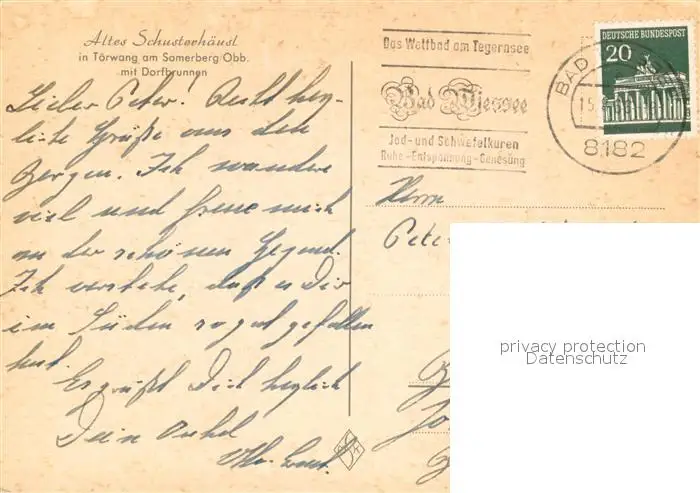 Altes Schusterhäusl
in Törwang am Samerberg/Obb.
mit Dorfbrunnen
Lieber Peter! Recht herz-
liche Grüße aus den
Bergen. Ich wandere
viel und freue mich
an der schönen Gegend.
Ich verstehe, daß es Dir
im Süden so gut gefallen
hat.
Es grüßt Dich herzlich
Dein Onkel
Das Weltbad am Tegernsee
Bad Wiessee
Jod- und Schwefelkuren
Ruhe-Entspannung-Genesung
BAD
15
8182
DEUTSCHE BUNDESPOST
20
Herrn
Peter
privacy protection
Datenschutz